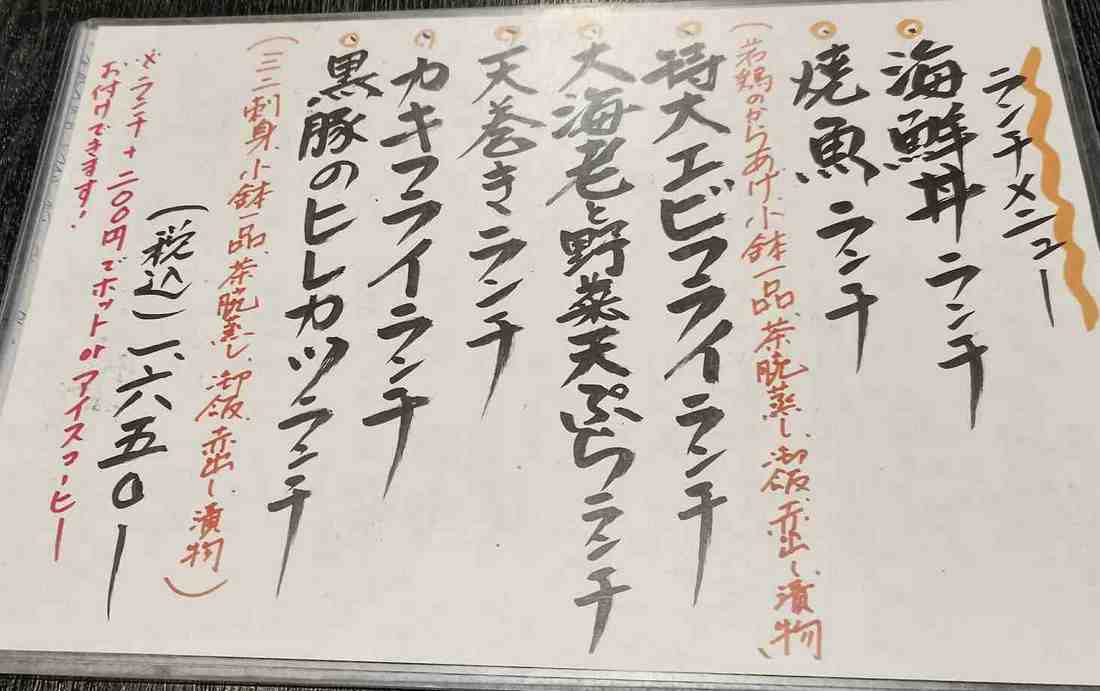 ランチメニュー
海鮮丼ランチ
焼魚ランチ
(若鶏のからあげ、小鉢一品、茶腕蒸し、御飯、赤出し、漬物)
特大エビフライランチ
大海老と野菜天ぷらランチ
天巻きランチ
カキフライランチ
黒豚のヒレカツランチ
(ミニ刺身、小鉢一品、茶腕蒸し、御飯、赤出し、漬物)
(税込)一、六五〇ー
※ランチ+二〇〇円でホットorアイスコーヒー
お付けできます!